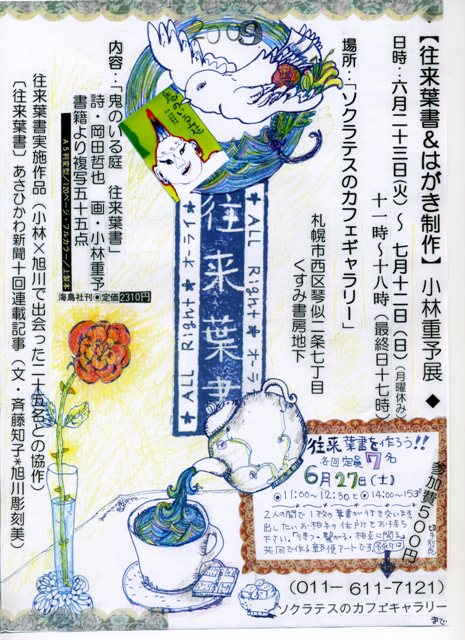 【往来葉書&はがき制作】小林重予展 ◆
日時:六月二十三日(火)~ 七月十二日(日)(月曜休み)
十一時~十八時(最終日十七時)
場所:「ソクラテスのカフェギャラリー」
札幌市西区琴似二条七丁目
くすみ書房地下
内容:「鬼のいる庭 往来葉書」
詩・岡田哲也 画・小林重予
書籍より複写五十五点
A5判変型/120ページ・フルカラー/上製本
海鳥社刊●定価2310円
往来葉書実施作品(小林×旭川で出会った二十五名との協作)
〔往来葉書〕あさひかわ新聞十回連載記事(文・斉藤知子*旭川彫刻美)
鬼のいる庭
往来葉書
★ALL Right★オーライ★
★ALL Right★オーライ
往来葉書を作ろう!!
各回定員7名
6月27日(土)
●11:00~12:30と●14:00~15
参加費500円
切手別途
2人の間で1枚の葉書が行き交います
出したいお相手の住所をお持ち
下さい。
共同で作る郵便アートです。
(011-611-7121)
ソクラテスのカフェギャラリー
まで